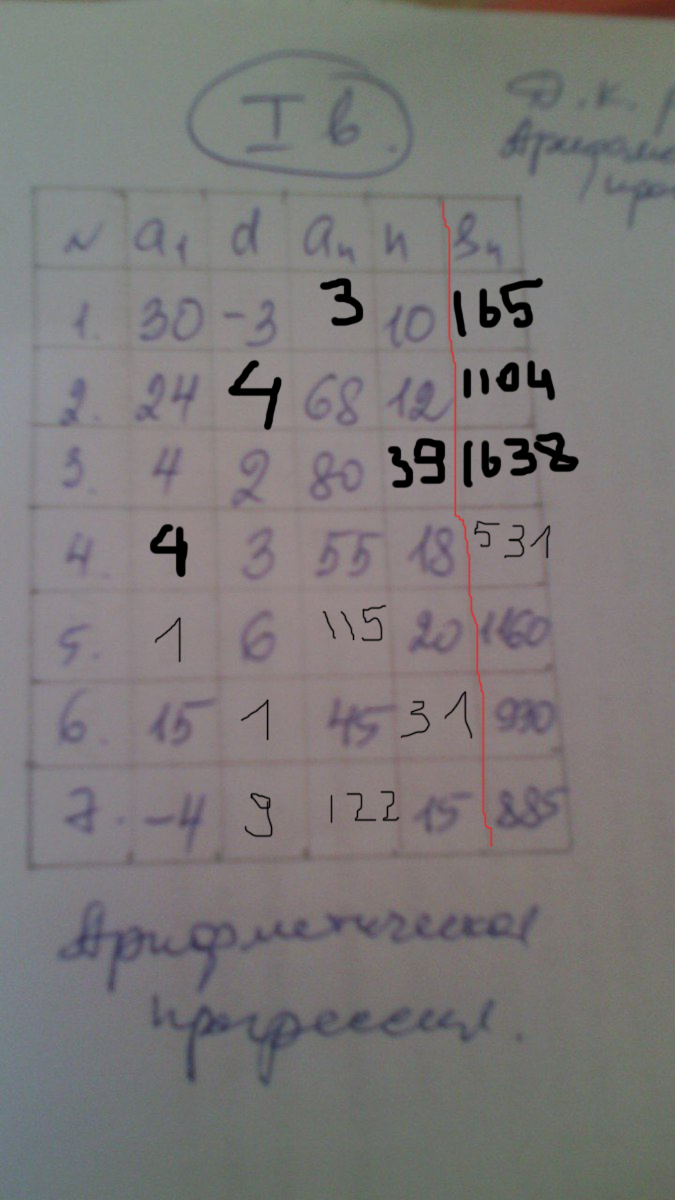 I в.
Д.К.
№ a₁ d aₙ n Sₙ
1. 30 -3 3 10 165
2. 24 4 68 12 1104
3. 4 2 80 39 1638
4. 4 3 55 18 531
5. 1 6 115 20 1160
6. 15 1 45 31 930
7. -4 9 122 15 885
Арифметическая
прогрессия.